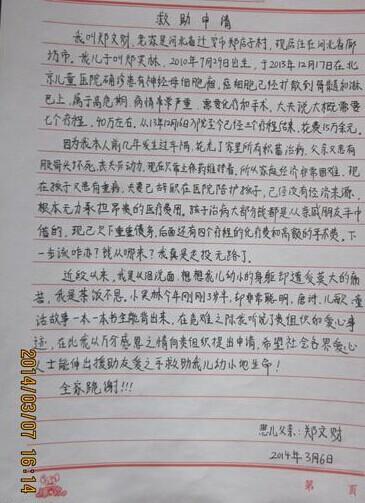 救助申请
我叫郑文财,老家是河北省迁安市郑店子村,现居住在河北省廊
坊市。我儿子叫郑笑林,2010年7月29日出生,于2013年12月17日在北
京儿童医院确诊患有神经母细胞瘤,癌细胞已经扩散到骨髓和淋
巴上,属于高危期,病情非常严重,需要化疗和手术,大夫说大概需要
七个疗程,40万左右。从13年12月6日入院至今已经三个疗程结束,花费15万余元。
因为我本人前几年发生过车祸,花光了家里所有积蓄治病,父亲又患有
股骨头坏死,丧失劳动力,现在只靠上保药维持着,所以家庭经济非常困难,现
在孩子又患有重病,夫妻已辞职在医院陪护孩子,已经没有经济来源,
根本无力承担昂贵的医疗费用。孩子治病大部分钱都是从亲戚朋友手中
借的,现已欠下重重债务,后面还有四个疗程的化疗费和高额的手术费。下
一步该咋办?钱从哪来?我真是走投无路了。
近段以来,我是以泪洗面,想想我儿幼小的身躯却遭受莫大的痛
苦,我是茶饭不思。小笑林今年刚刚3岁半,却非常聪明,唐诗、儿歌、童
话故事一本一本的全能背出来,在危难之际我听说了贵组织的爱心事
迹,在此我以万分感恩之情向贵组织提出申请,希望社会各界爱心
人士能伸出援助友爱之手救助我儿幼小地生命!
全家跪谢!!!
患儿父亲:郑文财
2014年3月6日
第 页
2014/03/07 16:14